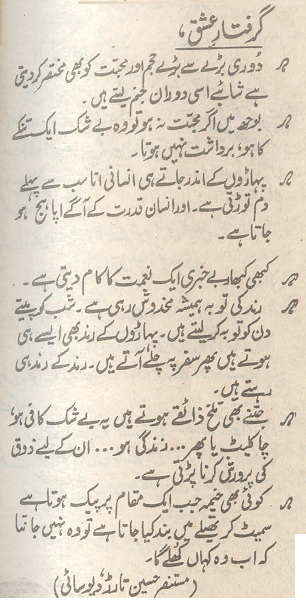 گرفتار عشق،
دُوری بڑے سے بڑے حجم اور محبّت کو بھی مختصر کر دیتی
ہے شائبے اسی دوران جنم لیتے ہیں۔
بوجھ میں اگر محبّت نہ ہو تو وہ بے شک ایک تنکے
کا ہو، برداشت نہیں ہوتا۔
پہاڑوں کے اندر جاتے ہی انسانی انا سب سے پہلے
دم توڑتی ہے۔ اور انسان قدرت کے آگے اپاہج ہو
جاتا ہے۔
کبھی کبھار بے خبری ایک نعمت کا کام دیتی ہے۔
رند کی توبہ ہمیشہ مخدوش رہی ہے۔ شب کو پیتے
دن کو توبہ کر لیتے ہیں۔ پہاڑوں کے رند بھی ایسے ہی
ہوتے ہیں پھر سفر پہ چلے آتے ہیں۔ رند کے رند ہی
رہتے ہیں۔
جتنے بھی تلخ ذائقے ہوتے ہیں یہ بے شک کافی ہو،
چاکلیٹ یا پھر... زندگی ہو... ان کے لیے ذوق
کی پرورش کرنا پڑتی ہے۔
کوئی بھی خیمہ جب ایک مقام پر پیک ہوتا ہے
سمیٹ کر تھیلے میں بند کیا جاتا ہے تو وہ نہیں جانتا
کہ اب وہ کہاں کُھلے گا۔
(مستنصر حسین تارڑ، دیوسائی)